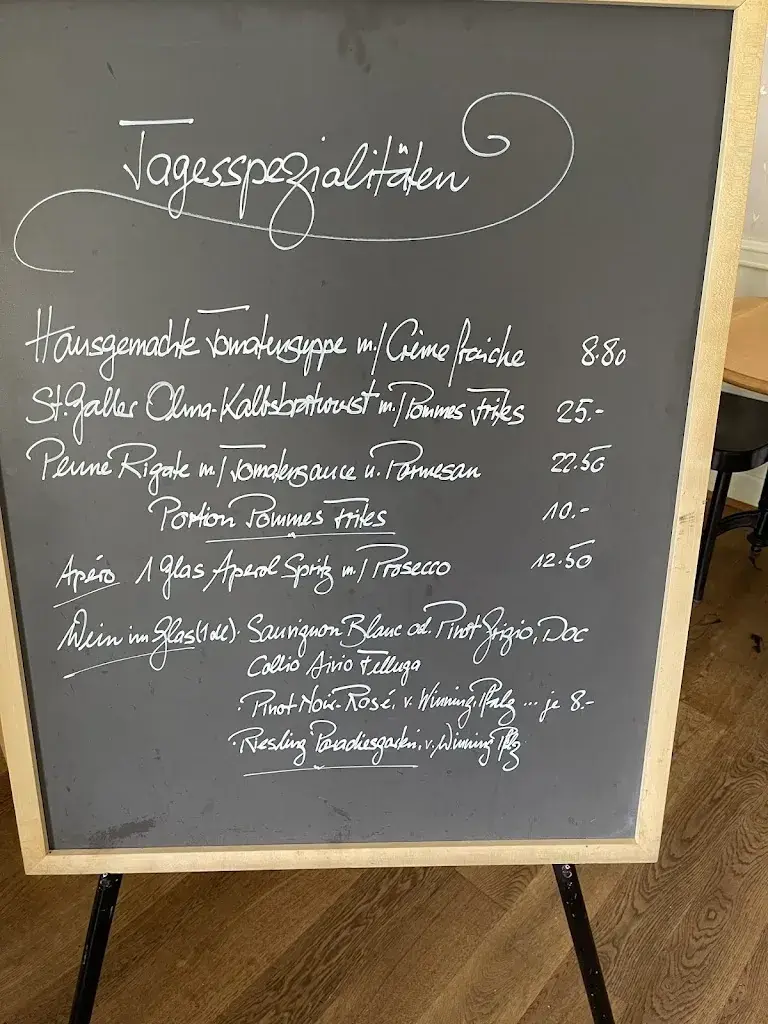 Tagesspezialitäten
Hausgemachte Tomatensuppe m./Crème fraiche 8.80
St.Galler Olma-Kalbsbratwurst m./Pommes frites 25.-
Penne Rigate m./Tomatensauce u. Parmesan 22.50
Portion Pommes frites 10.-
Apéro 1 Glas Aperol Spritz m./Prosecco 12.50
Wein im Glas (1dl) · Sauvignon Blanc od. Pinot Grigio, Doc
Collio Livio Felluga
· Pinot Noir-Rosé, v. Winning, Pfalz ... je 8.-
· Riesling Paradiesgarten, v. Winning Pflz